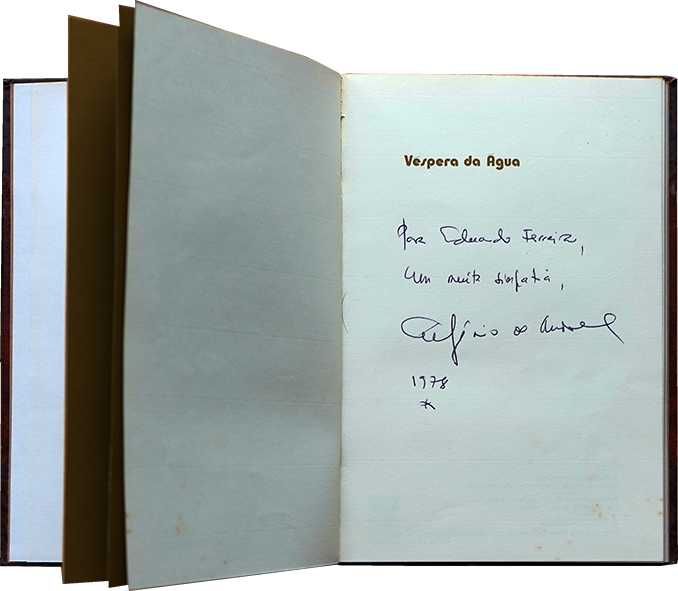 Vespera da Agua
Para Eduardo Ferreira,
com muita simpatia,
Eugénio de Andrade
1978